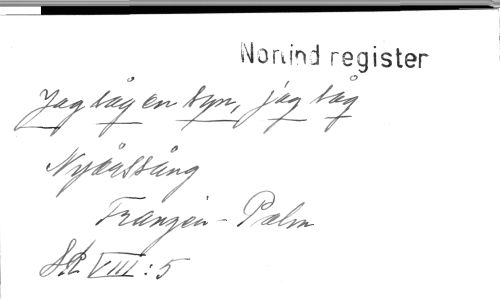 Norlind register
Jag såg en syn, jag såg
Nyårssång
Franzén - Palm
SS VIII: 5